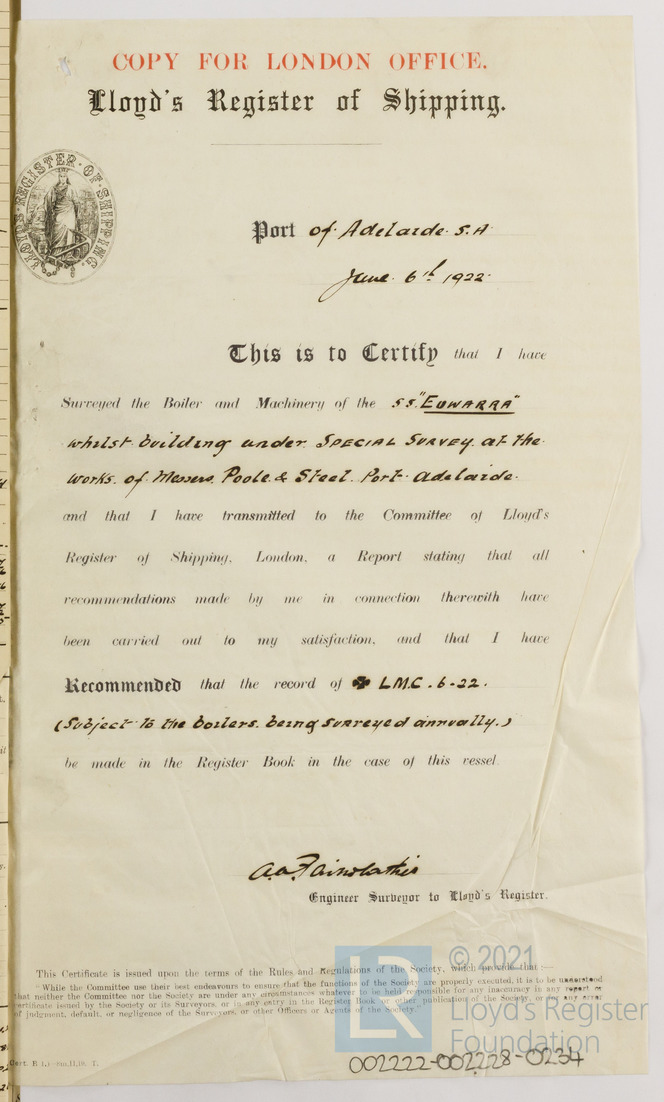 COPY FOR LONDON OFFICE.
Lloyd's Register of Shipping.
LLOYD'S REGISTER OF SHIPPING.
Port of Adelaide S.A
June 6th 1922
This is to Certify that I have
Surveyed the Boiler and Machinery of the SS "EUWARRA"
whilst building under SPECIAL SURVEY at the
works of Messers Poole & Steel Port Adelaide
and that I have transmitted to the Committee of Lloyd's
Register of Shipping, London, a Report stating that all
recommendations made by me in connection therewith have
been carried out to my satisfaction, and that I have
Recommended that the record of ✠ L.M.C. 6-22.
(Subject to the boilers being surveyed annually.)
be made in the Register Book in the case of this vessel.
Engineer Surveyor to Lloyd's Register.
This Certificate is issued upon the terms of the Rules and Regulations of the Society, which provide that:—
"While the Committee use their best endeavours to ensure that the functions of the Society are properly executed, it is to be understood
that neither the Committee nor the Society are under any circumstances whatever to be held responsible for any inaccuracy in any report or
certificate issued by the Society or its Surveyors, or in any entry in the Register Book or other publication of the Society, or for any error
of judgment, default, or negligence of the Surveyors, or other Officers or Agents of the Society."
LR
© 2021
Lloyd's Register
Foundation
002222-002228-0234